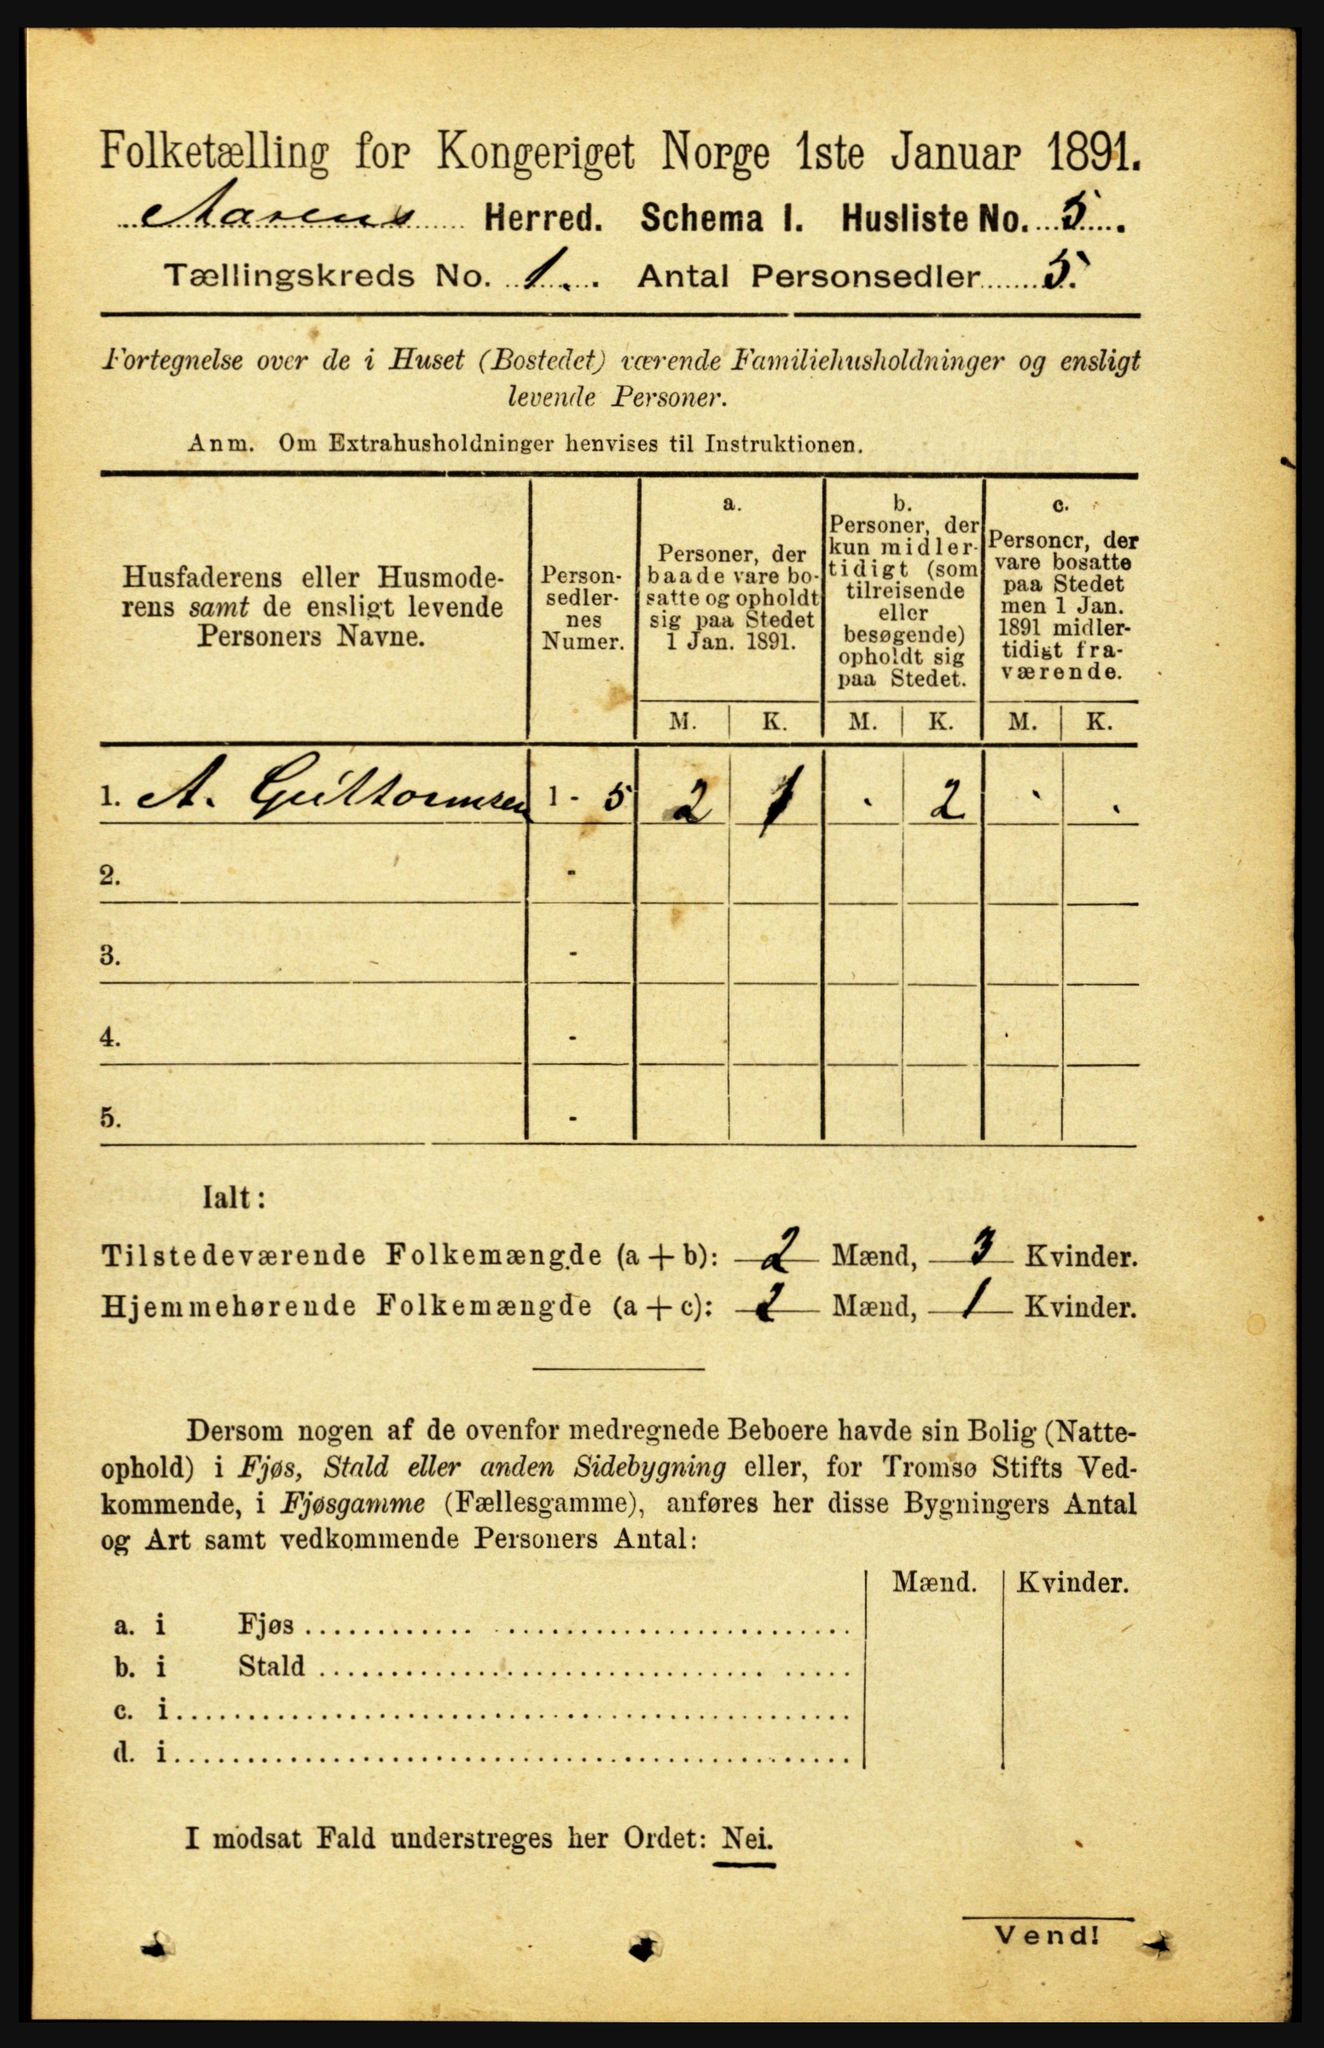 Folketælling for Kongeriget Norge 1ste Januar 1891.
Aarens Herred. Schema I. Husliste No. 5.
Tællingskreds No. 1. Antal Personsedler 5.
Fortegnelse over de i Huset (Bostedet) værende Familiehusholdninger og ensligt
levende Personer.
Anm. Om Extrahusholdninger henvises til Instruktionen.
Husfaderens eller Husmode-
rens samt de ensligt levende
Personers Navne.
Person-
sedler-
nes
Numer.
a.
Personer, der
baade vare bo-
satte og opholdt
sig paa Stedet
1 Jan. 1891.
b.
Personer, der
kun midler-
tidigt (som
tilreisende
eller
besøgende)
opholdt sig
paa Stedet.
c.
Personer, der
vare bosatte
paa Stedet
men 1 Jan.
1891 midler-
tidigt fra-
værende.
M. K. M. K. M. K.
1. A. Guttormsen 1 - 5 2 1 . 2 . .
2. -
3. -
4. -
5. -
Ialt:
Tilstedeværende Folkemængde (a + b): 2 Mænd, 3 Kvinder.
Hjemmehørende Folkemængde (a + c): 2 Mænd, 1 Kvinder.
Dersom nogen af de ovenfor medregnede Beboere havde sin Bolig (Natte-
ophold) i Fjøs, Stald eller anden Sidebygning eller, for Tromsø Stifts Ved-
kommende, i Fjøsgamme (Fællesgamme), anføres her disse Bygningers Antal
og Art samt vedkommende Personers Antal:
Mænd. Kvinder.
a. i Fjøs
b. i Stald
c. i
d. i
I modsat Fald understreges her Ordet: Nei.
Vend!